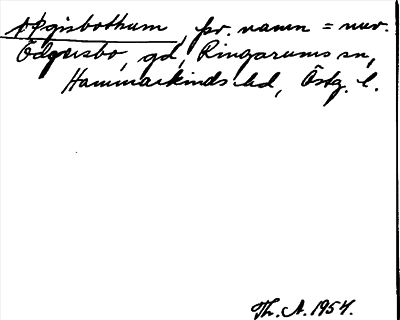 øþgisbothum, fsv. namn = nuv.
Ödgusbo, gd, Ringarums sn,
Hammarkinds hd, Östg. l.
Th. A. 1954.